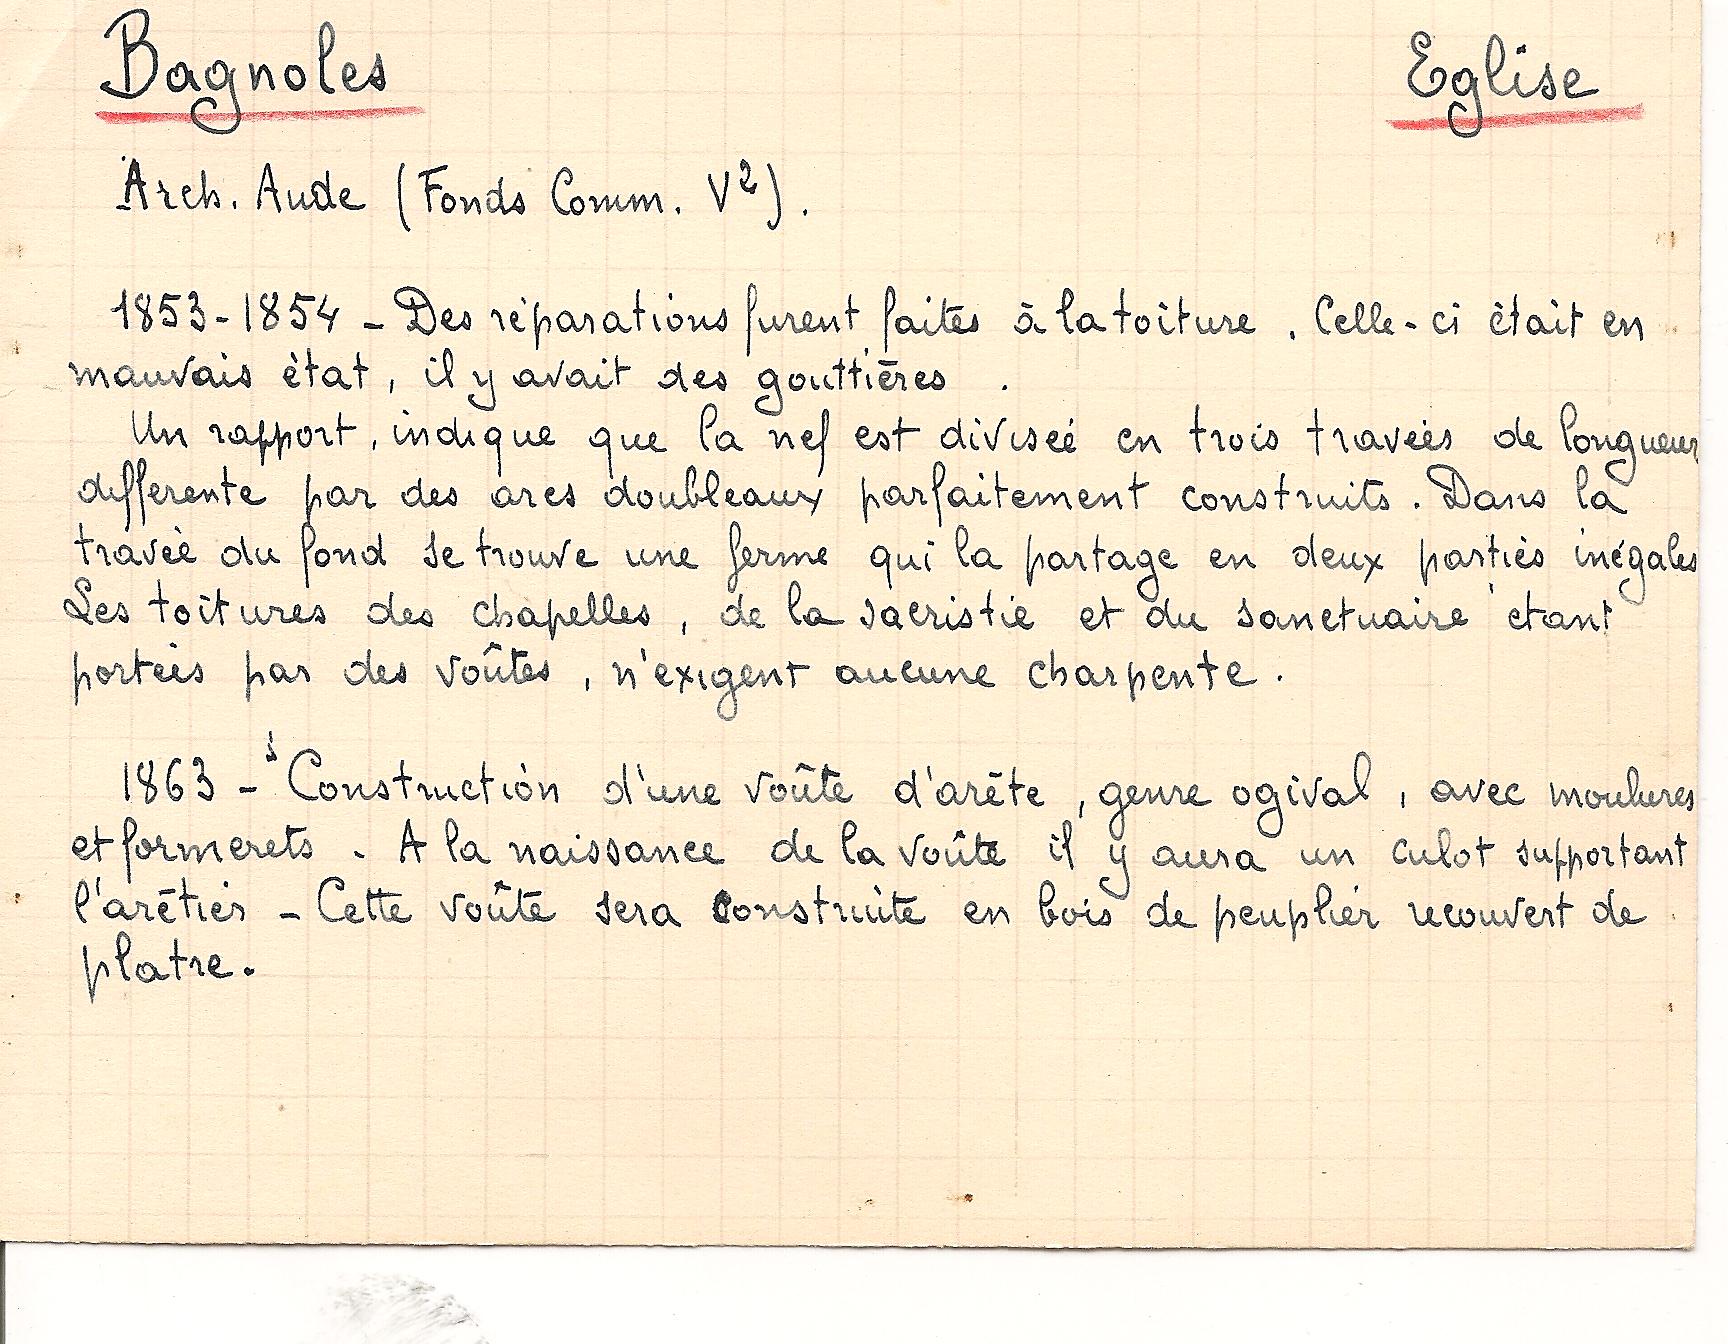 Bagnoles Eglise
Arch. Aude (Fonds Comm. V²).
1853-1854 - Des réparations furent faites à la toiture. Celle-ci était en
mauvais état, il y avait des gouttières.
Un rapport, indique que la nef est divisée en trois travées de longueur
differente par des arcs doubleaux parfaitement construits. Dans la
travée du fond se trouve une ferme qui la partage en deux parties inégales
Les toitures des chapelles, de la sacristie et du sanctuaire étant
portées par des voûtes, n'exigent aucune charpente.
1863 - Construction d'une voûte d'arête, genre ogival, avec moulures
et formerets. A la naissance de la voûte il y aura un culot supportant
l'arêtier - Cette voûte sera construite en bois de peuplier recouvert de
platre.